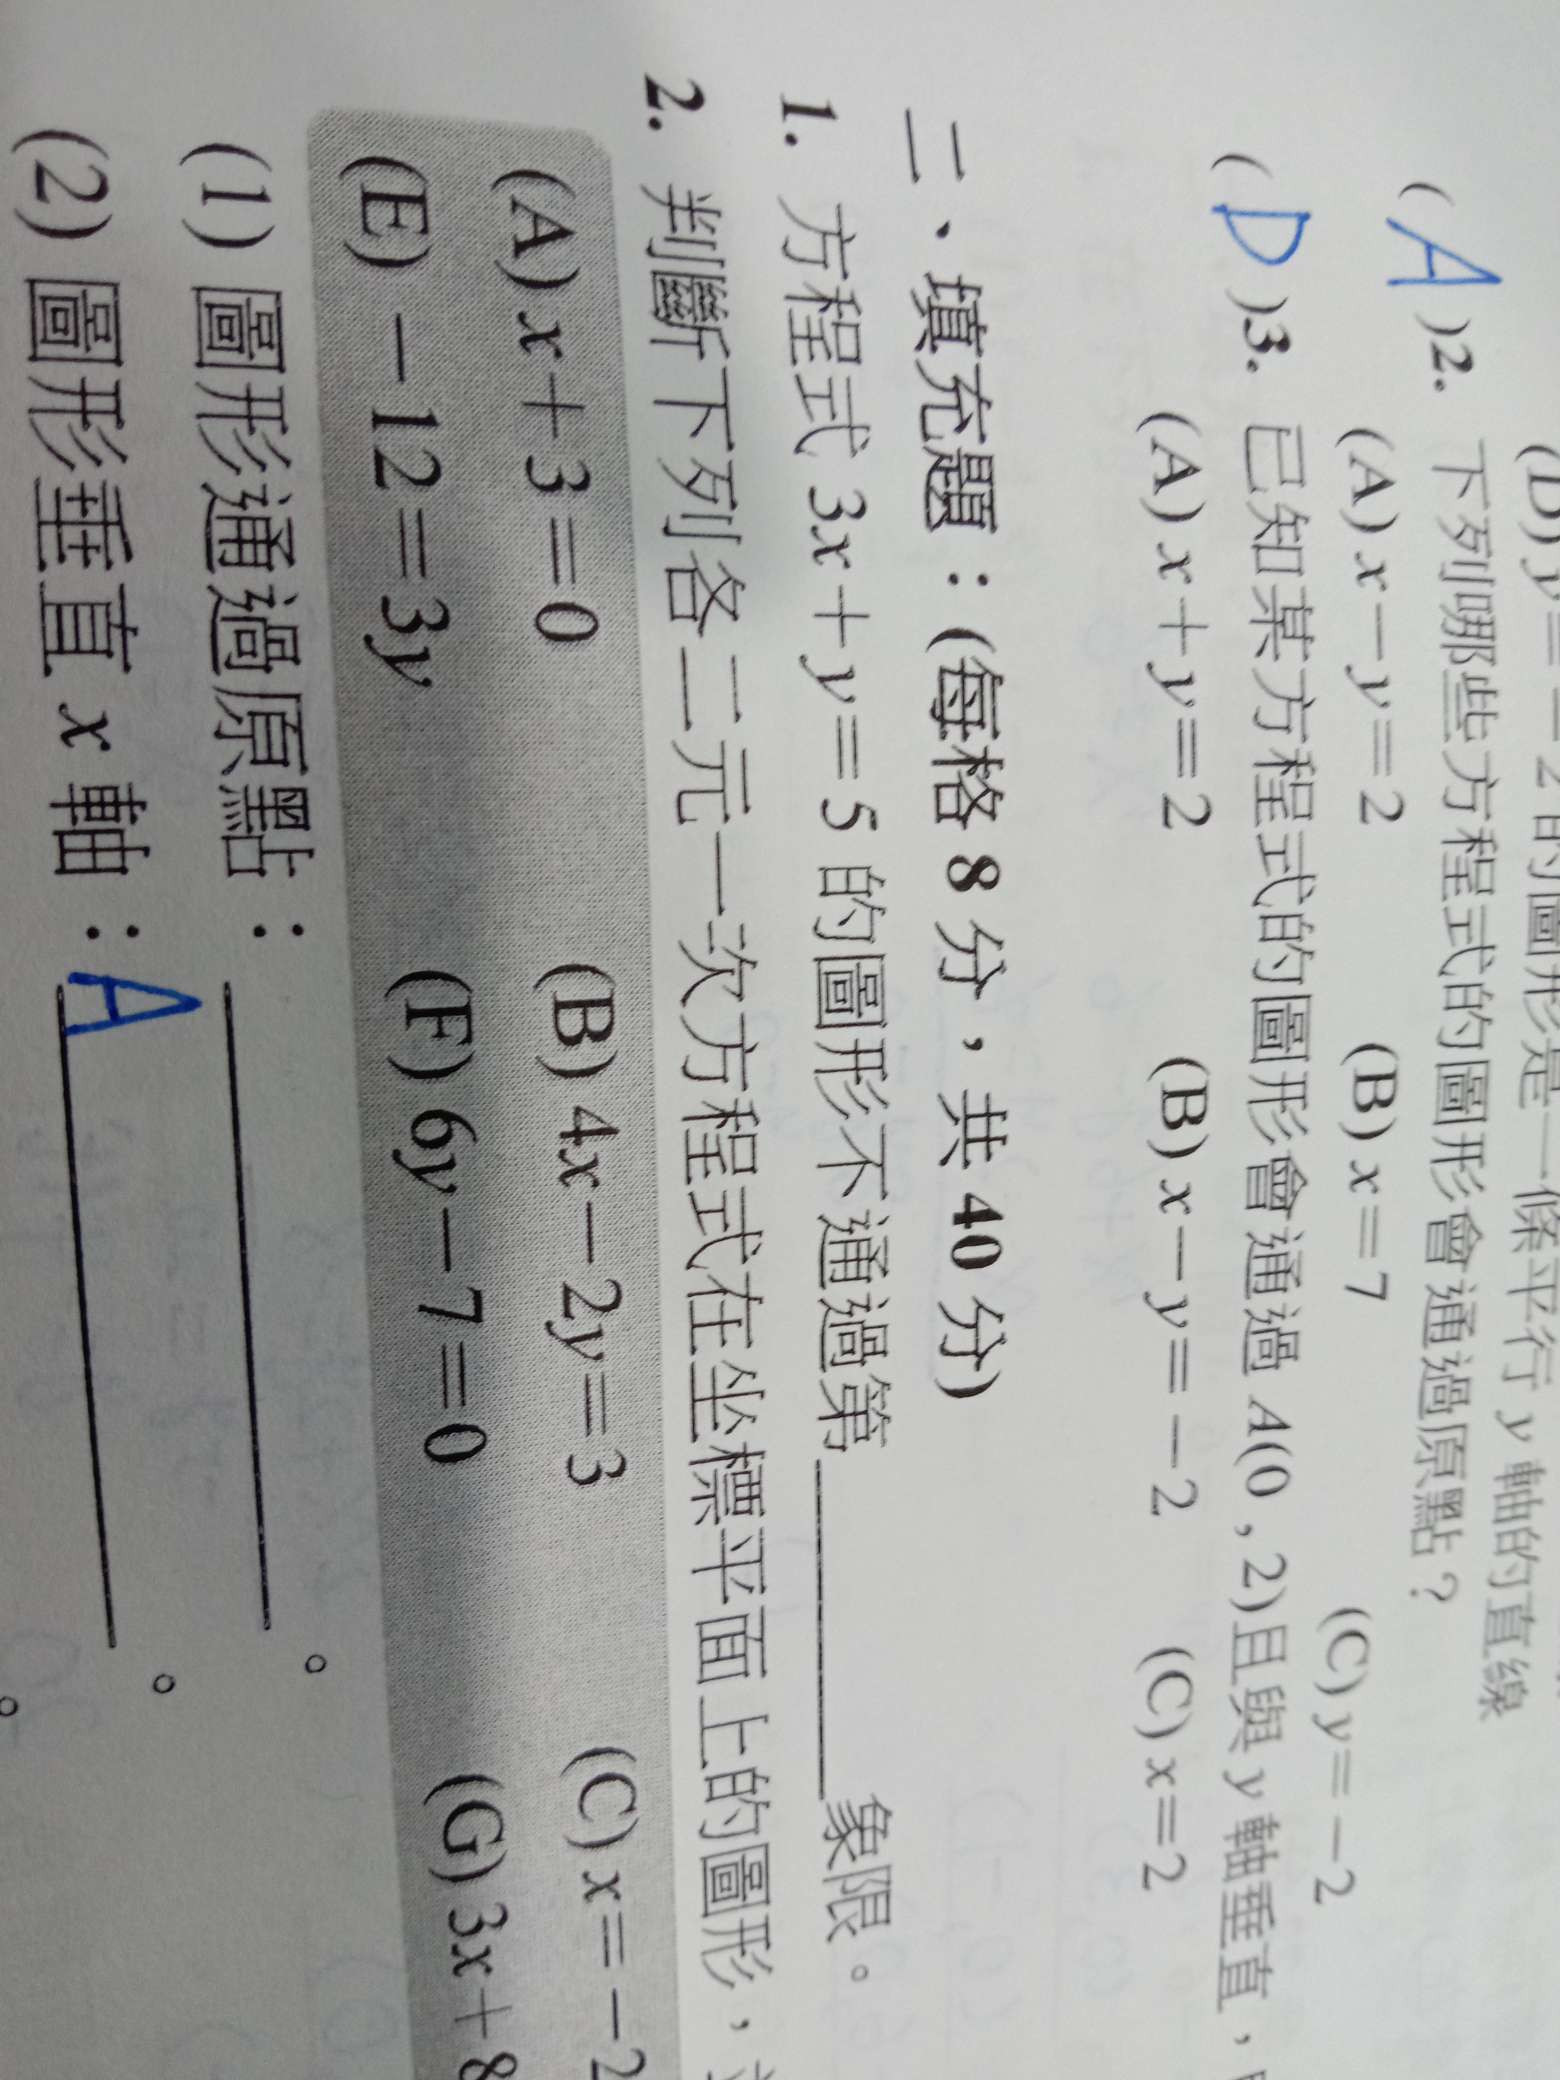 (D) y=－2 的圖形是一條平行 y 軸的直線
( A )2. 下列哪些方程式的圖形會通過原點？
(A) x－y＝2 (B) x＝7 (C) y＝－2
( D )3. 已知某方程式的圖形會通過 A(0 , 2)且與 y 軸垂直，
(A) x＋y＝2 (B) x－y＝－2 (C) x＝2
二、填充題：(每格 8 分，共 40 分)
1. 方程式 3x＋y＝5 的圖形不通過第 象限。
2. 判斷下列各二元一次方程式在坐標平面上的圖形，
(A) x＋3＝0 (B) 4x－2y＝3 (C) x＝－2
(E) －12＝3y (F) 6y－7＝0 (G) 3x＋8
(1) 圖形通過原點： 。
(2) 圖形垂直 x 軸：A 。